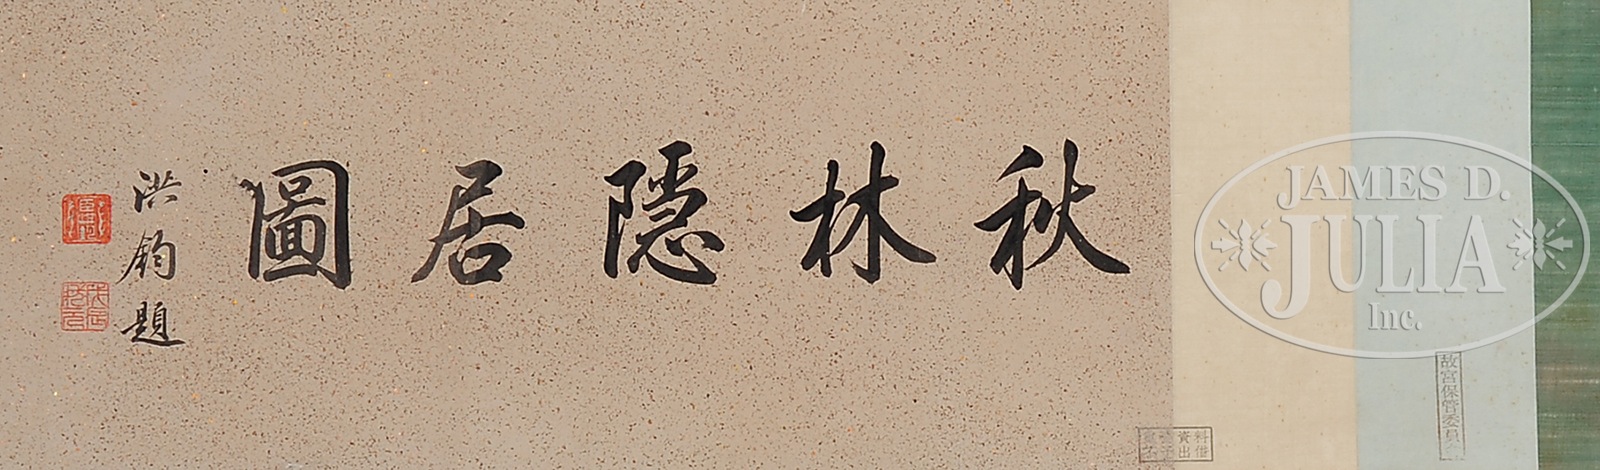 秋林隱居圖
洪鈞題
故宮保管委員
資料
出借
JAMES D.
JULIA
Inc.